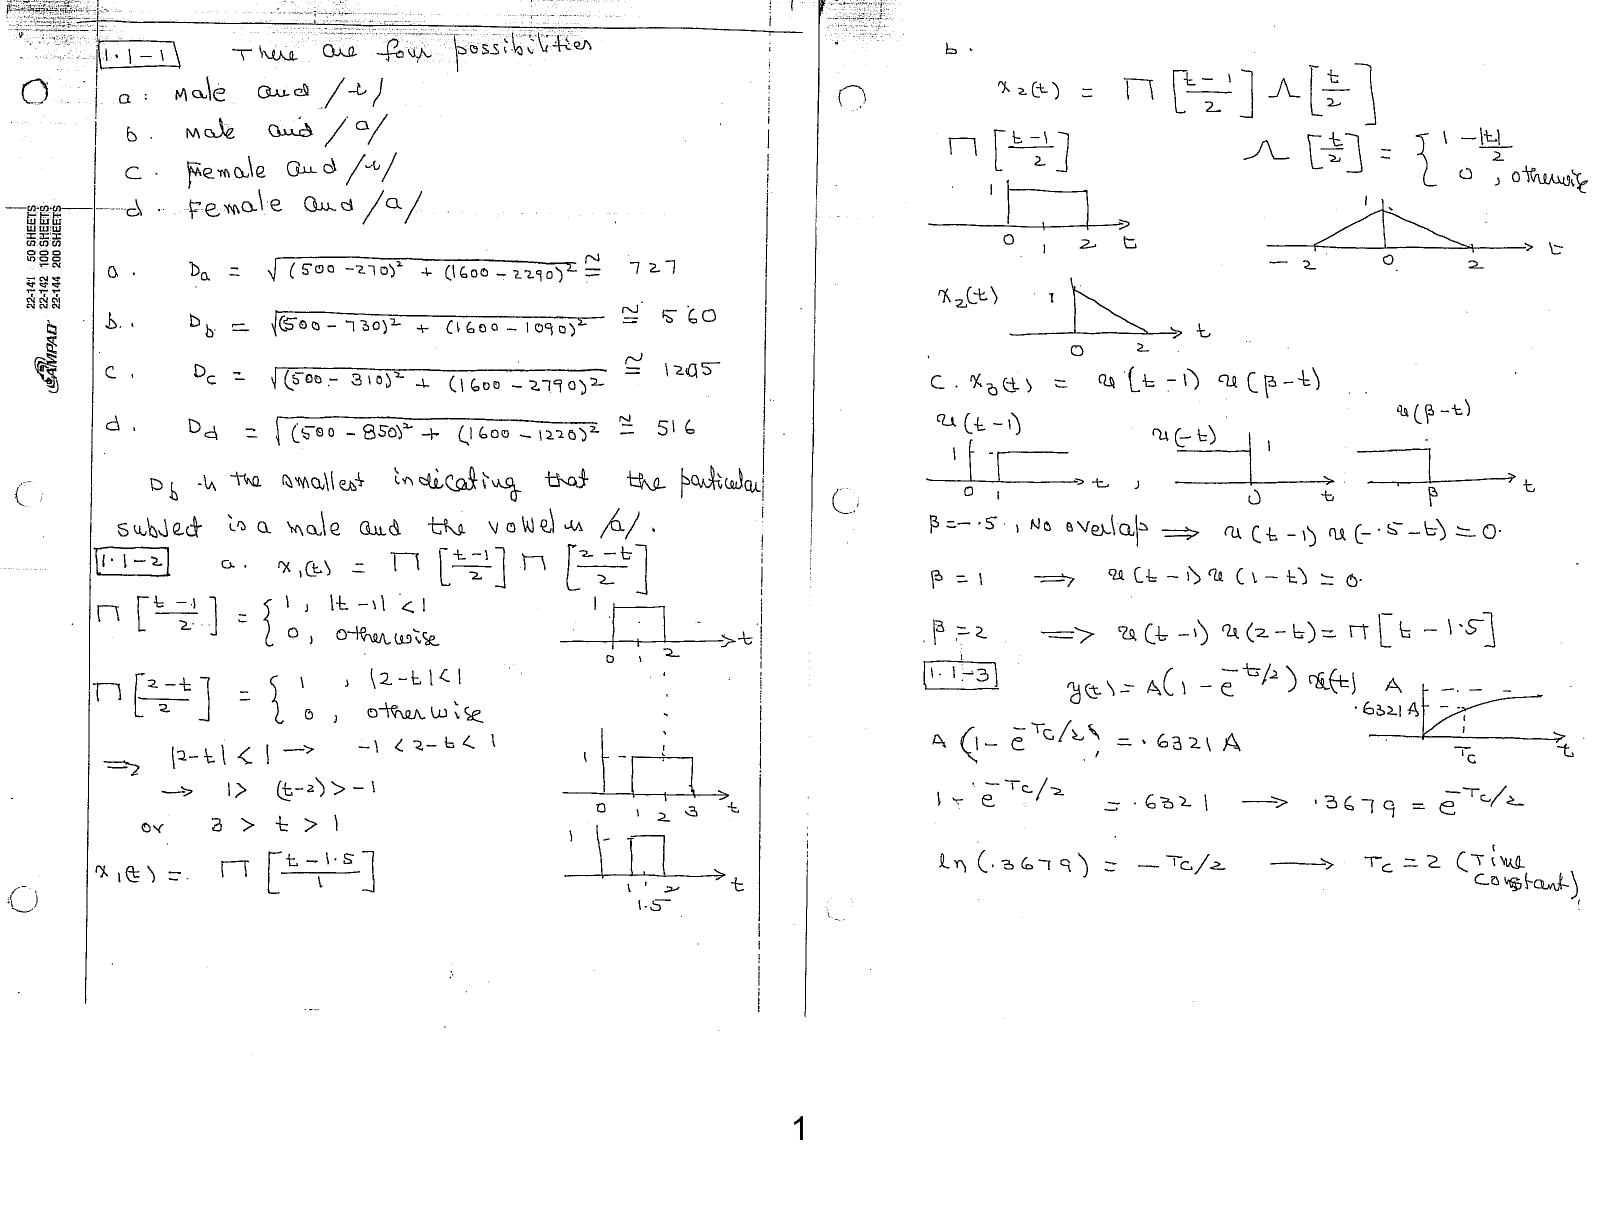 1.1-1 There are four possibilities
a: Male and /i/
b. Male and /a/
c. Female and /i/
d. Female and /a/
22-141 50 SHEETS
22-142 100 SHEETS
22-144 200 SHEETS
AMPAD
a. Da = √(500-270)² + (1600-2290)² ≅ 727
b. Db = √(500-730)² + (1600-1090)² ≅ 560
c. Dc = √(500-310)² + (1600-2790)² ≅ 1205
d. Dd = √(500-850)² + (1600-1220)² ≅ 516
Db is the smallest indicating that the particular
subject is a male and the vowel is /a/.
1.1-2 a. x₁(t) = Π[(t-1)/2] Π[(2-t)/2]
Π[(t-1)/2] = { 1, |t-1| < 1
0, otherwise
1 0 1 2 t
Π[(2-t)/2] = { 1, |2-t| < 1
0, otherwise
⇒ |2-t| < 1 → -1 < 2-t < 1
→ 1 > (t-2) > -1
or 3 > t > 1
1 0 1 2 3 t
x₁(t) = Π[(t-1.5)/1]
1 1 2 t
1.5
b.
x₂(t) = Π[(t-1)/2] Λ[t/2]
Π[(t-1)/2] Λ[t/2] = { 1-|t|/2
0, otherwise
1 0 1 2 t
1 -2 0 2 t
x₂(t) 1 0 2 t
c. x₃(t) = u(t-1) u(β-t)
u(t-1) u(-t) u(β-t)
1 0 1 t, 1 0 t β t
β=-.5, No overlap ⇒ u(t-1) u(-.5-t) = 0.
β=1 ⇒ u(t-1) u(1-t) = 0.
β=2 ⇒ u(t-1) u(2-t) = Π[t-1.5]
1.1-3 y(t) = A(1-e^-t/2) u(t)
A .6321A Tc t
A(1-e^-Tc/2) = .6321 A
1-e^-Tc/2 = .6321 → .3679 = e^-Tc/2
ln(.3679) = -Tc/2 → Tc = 2 (Time
constant).
1